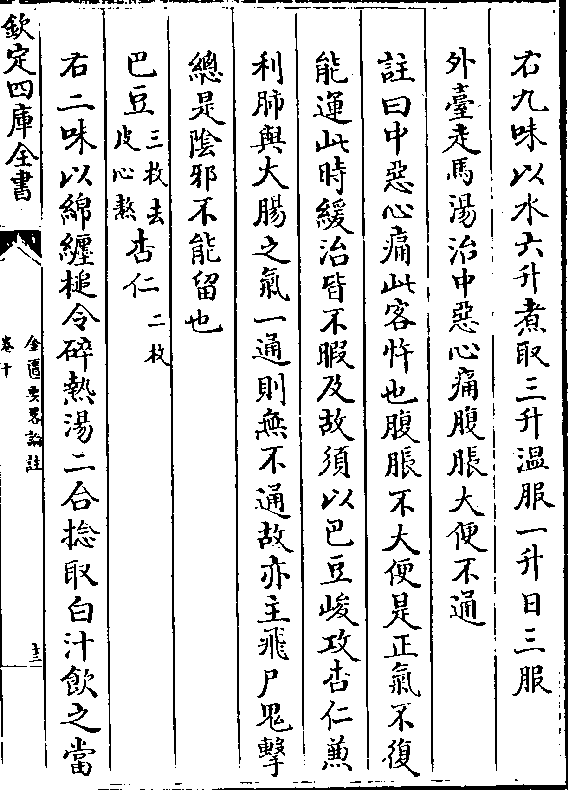 右九味以水六升煮取三升温服一升日三服
外臺走馬湯治中惡心痛腹脹大便不通
註曰中惡心痛此客忤也腹脹不大便是正氣不復
能運此時緩治皆不暇及故須以巴豆峻攻杏仁兼
利肺與大腸之氣一通則無不通故亦主飛尸鬼擊
總是陰邪不能留也
巴豆三枚去皮心熬 杏仁二枚
右二味以綿纏槌令碎熱湯二合捻取白汁飲之當
欽定四庫全書
金匱要畧論註
卷十
十二